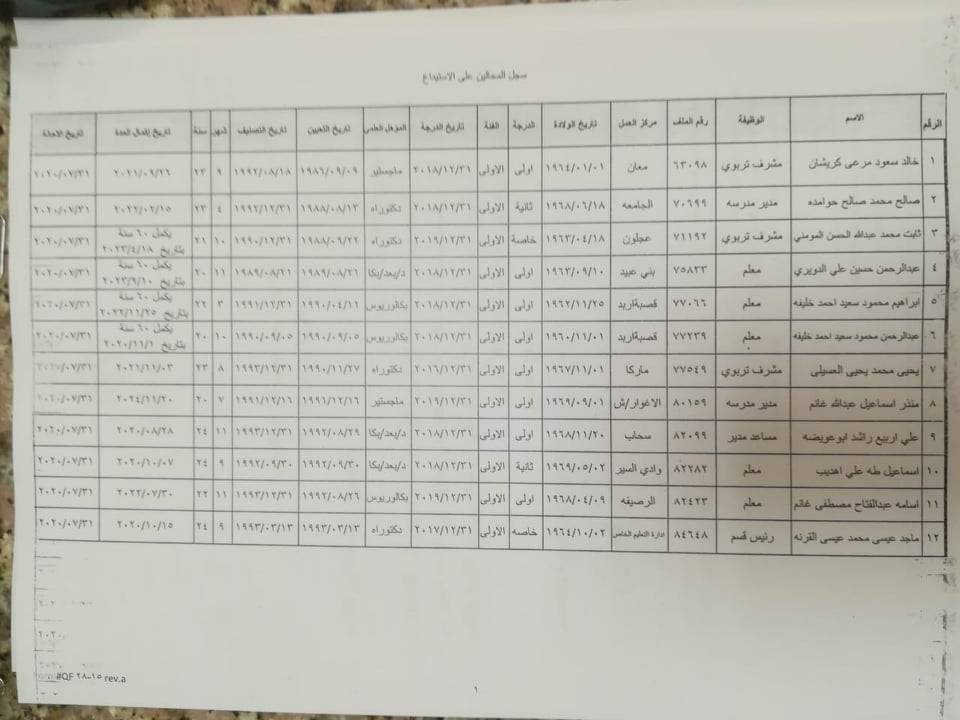 سجل المحالين على الاستيداع
الرقم الاسم الوظيفة رقم الملف مركز العمل تاريخ الولادة الدرجة الفئة تاريخ الدرجة المؤهل العلمي تاريخ التعيين تاريخ التصنيف شهر سنة تاريخ إكمال المدة تاريخ الاحالة
١ خالد سعود مرعي كريشان مشرف تربوي ٦٣٠٩٨ معان ١٩٦٤/٠١/٠١ اولى الاولى ٢٠١٨/١٢/٣١ ماجستير ١٩٨٦/٠٩/٠٩ ١٩٩٢/٠٨/١٨ ٩ ٢٣ ٢٠٢١/٠٩/٢٦ ٢٠٢٠/٠٧/٣١
٢ صالح محمد صالح حوامده مدير مدرسه ٧٠٦٩٩ الجامعه ١٩٦٨/٠٦/١٨ ثانية الاولى ٢٠١٨/١٢/٣١ دكتوراه ١٩٨٨/٠٨/١٣ ١٩٩٢/١٢/٣١ ٤ ٢٣ ٢٠٢٢/٠٢/١٥ ٢٠٢٠/٠٧/٣١
٣ ثابت محمد عبدالله الحسن المومني مشرف تربوي ٧١١٩٢ عجلون ١٩٦٣/٠٤/١٨ خاصة الاولى ٢٠١٩/١٢/٣١ دكتوراه ١٩٨٨/٠٩/٢٢ ١٩٩٠/١٢/٣١ ١٠ ٢١ يكمل ٦٠ سنة
بتاريخ ٢٠٢٣/٤/١٨ ٢٠٢٠/٠٧/٣١
٤ عبدالرحمن حسين علي الدويري معلم ٧٥٨٣٣ بني عبيد ١٩٦٣/٠٩/١٠ اولى الاولى ٢٠١٨/١٢/٣١ د/بعد/بكا ١٩٨٩/٠٨/٢١ ١٩٨٩/٠٨/٢١ ١١ ٢٠ يكمل ٦٠ سنة
بتاريخ ٢٠٢٣/٩/١٠ ٢٠٢٠/٠٧/٣١
٥ ابراهيم محمود سعيد احمد خليفه معلم ٧٧٠٦٦ قصبةاربد ١٩٦٢/١١/٢٥ اولى الاولى ٢٠١٨/١٢/٣١ بكالوريوس ١٩٩٠/٠٤/١١ ١٩٩١/١٢/٣١ ٣ ٢٢ يكمل ٦٠ سنة
بتاريخ ٢٠٢٢/١١/٢٥ ٢٠٢٠/٠٧/٣١
٦ عبدالرحمن محمود سعيد احمد خليفه معلم ٧٧٢٣٩ قصبةاربد ١٩٦٠/١١/٠١ اولى الاولى ٢٠١٨/١٢/٣١ بكالوريوس ١٩٩٠/٠٩/٠٥ ١٩٩٠/٠٩/٠٥ ١٠ ٢٠ يكمل ٦٠ سنة
بتاريخ ٢٠٢٠/١١/١ ٢٠٢٠/٠٧/٣١
٧ يحيى محمد يحيى العسيلي مشرف تربوي ٧٧٥٤٩ ماركا ١٩٦٧/١١/٠١ اولى الاولى ٢٠١٦/١٢/٣١ دكتوراه ١٩٩٠/١١/٢٧ ١٩٩٣/١٢/٣١ ٨ ٢٣ ٢٠٢١/١١/٠٣
٨ منذر اسماعيل عبدالله غانم مدير مدرسه ٨٠١٥٩ الاغوار/ش ١٩٦٩/٠٩/٠١ اولى الاولى ٢٠١٩/١٢/٣١ ماجستير ١٩٩١/١٢/١٦ ١٩٩١/١٢/١٦ ٧ ٢٠ ٢٠٢٤/١١/٢٠ ٢٠٢٠/٠٧/٣١
٩ علي اربيع راشد ابوعويضه مساعد مدير ٨٢٠٩٩ سحاب ١٩٦٨/١١/٢٠ اولى الاولى ٢٠١٨/١٢/٣١ د/بعد/بكا ١٩٩٢/٠٨/٢٩ ١٩٩٣/١٢/٣١ ١١ ٢٤ ٢٠٢٠/٠٨/٢٨ ٢٠٢٠/٠٧/٣١
١٠ اسماعيل طه علي اهديب معلم ٨٢٢٨٢ وادي السير ١٩٦٩/٠٥/٠٢ ثانية الاولى ٢٠١٨/١٢/٣١ د/بعد/بكا ١٩٩٢/٠٩/٣٠ ١٩٩٢/٠٩/٣٠ ٩ ٢٤ ٢٠٢٠/١٠/٠٧ ٢٠٢٠/٠٧/٣١
١١ اسامه عبدالفتاح مصطفى غانم معلم ٨٢٤٢٣ الرصيفه ١٩٦٨/٠٤/٠٩ اولى الاولى ٢٠١٩/١٢/٣١ بكالوريوس ١٩٩٢/٠٨/٢٦ ١٩٩٣/١٢/٣١ ١١ ٢٢ ٢٠٢٢/٠٧/٣٠ ٢٠٢٠/٠٧/٣١
١٢ ماجد عيسى محمد عيسى القرنه رئيس قسم ٨٤٦٤٨ ادارة التعليم الخاص ١٩٦٤/١٠/٠٢ خاصه الاولى ٢٠١٧/١٢/٣١ دكتوراه ١٩٩٣/٠٣/١٣ ١٩٩٣/٠٣/١٣ ٩ ٢٤ ٢٠٢٠/١٠/١٥ ٢٠٢٠/٠٧/٣١
#QF ٢٨-١٥ rev.a
١